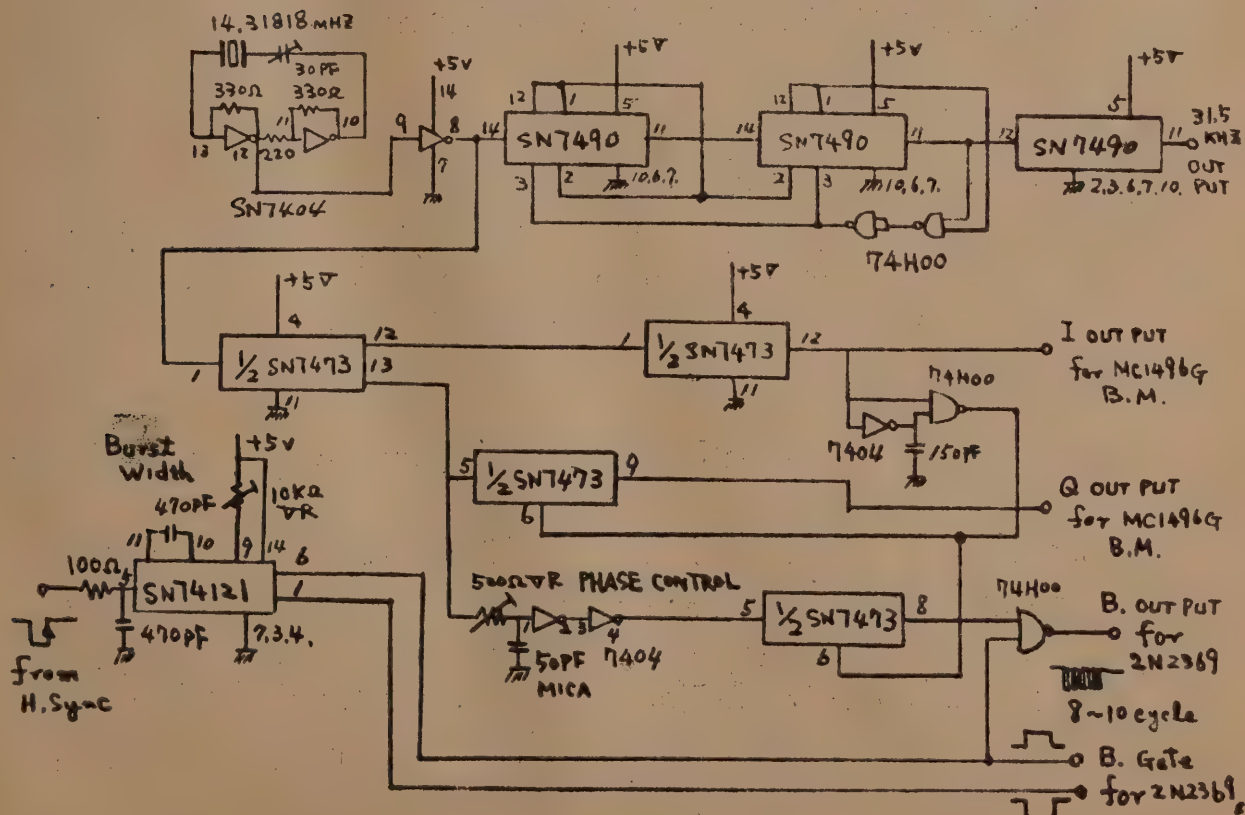 14.31818 MHZ
30PF
330Ω
330Ω
11
10
13
12
220
SN7404
+5V
14
9
8
7
14
+5V
12
1
5
SN7490
11
3
2
10,6,7.
14
+5V
12
1
5
SN7490
11
2
3
10,6,7.
74H00
+5V
5
12
SN7490
11
31.5
KHZ
OUT
PUT
2,3,6,7,10.
+5V
4
12
1
1/2 SN7473
13
11
+5V
4
1
1/2 SN7473
12
11
74H00
7404
150PF
I OUT PUT
for MC1496G
B.M.
5
1/2 SN7473
9
6
Q OUT PUT
for MC1496G
B.M.
Burst
Width
+5V
470PF
10KΩ
VR
11
10
9
14
6
100Ω
5
SN74121
1
470PF
7,3,4.
from
H.Sync
500Ω VR PHASE CONTROL
1
2
3
4
7404
50PF
MICA
5
1/2 SN7473
8
6
74H00
B. OUT PUT
for
2N2369
8~10 cycle
B. Gate
for 2N2369